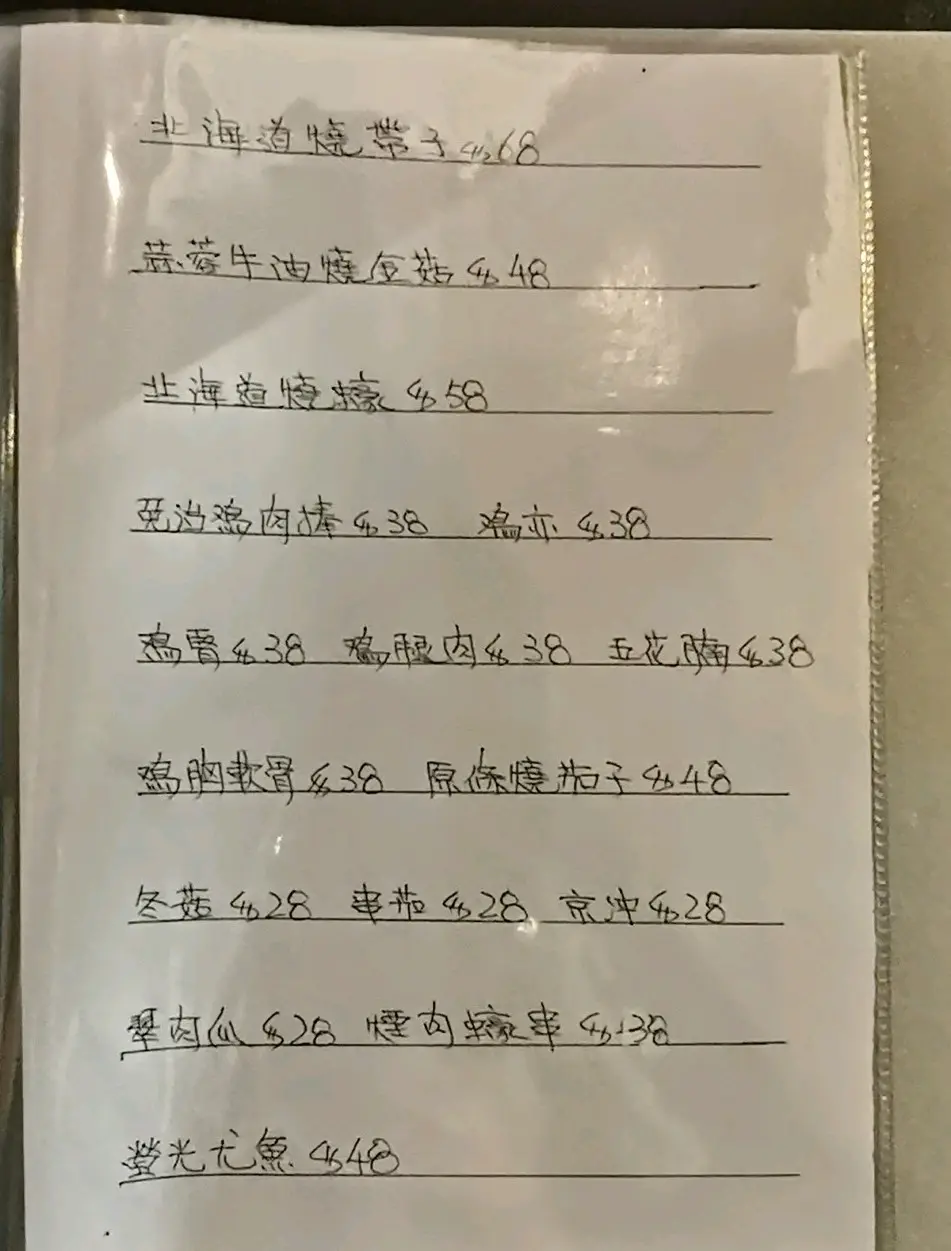 北海道燒帶子 $68
蒜蓉牛油燒金菇 $48
北海道燒蠔 $58
免治鸡肉捧 $38 鸡亦 $38
鸡腎 $38 鸡腿肉 $38 五花腩 $38
鸡胸軟骨 $38 原條燒茄子 $48
冬菇 $28 串茄 $28 京沖 $28
翠肉瓜 $28 煙肉蠔串 $38
螢光尤魚 $48